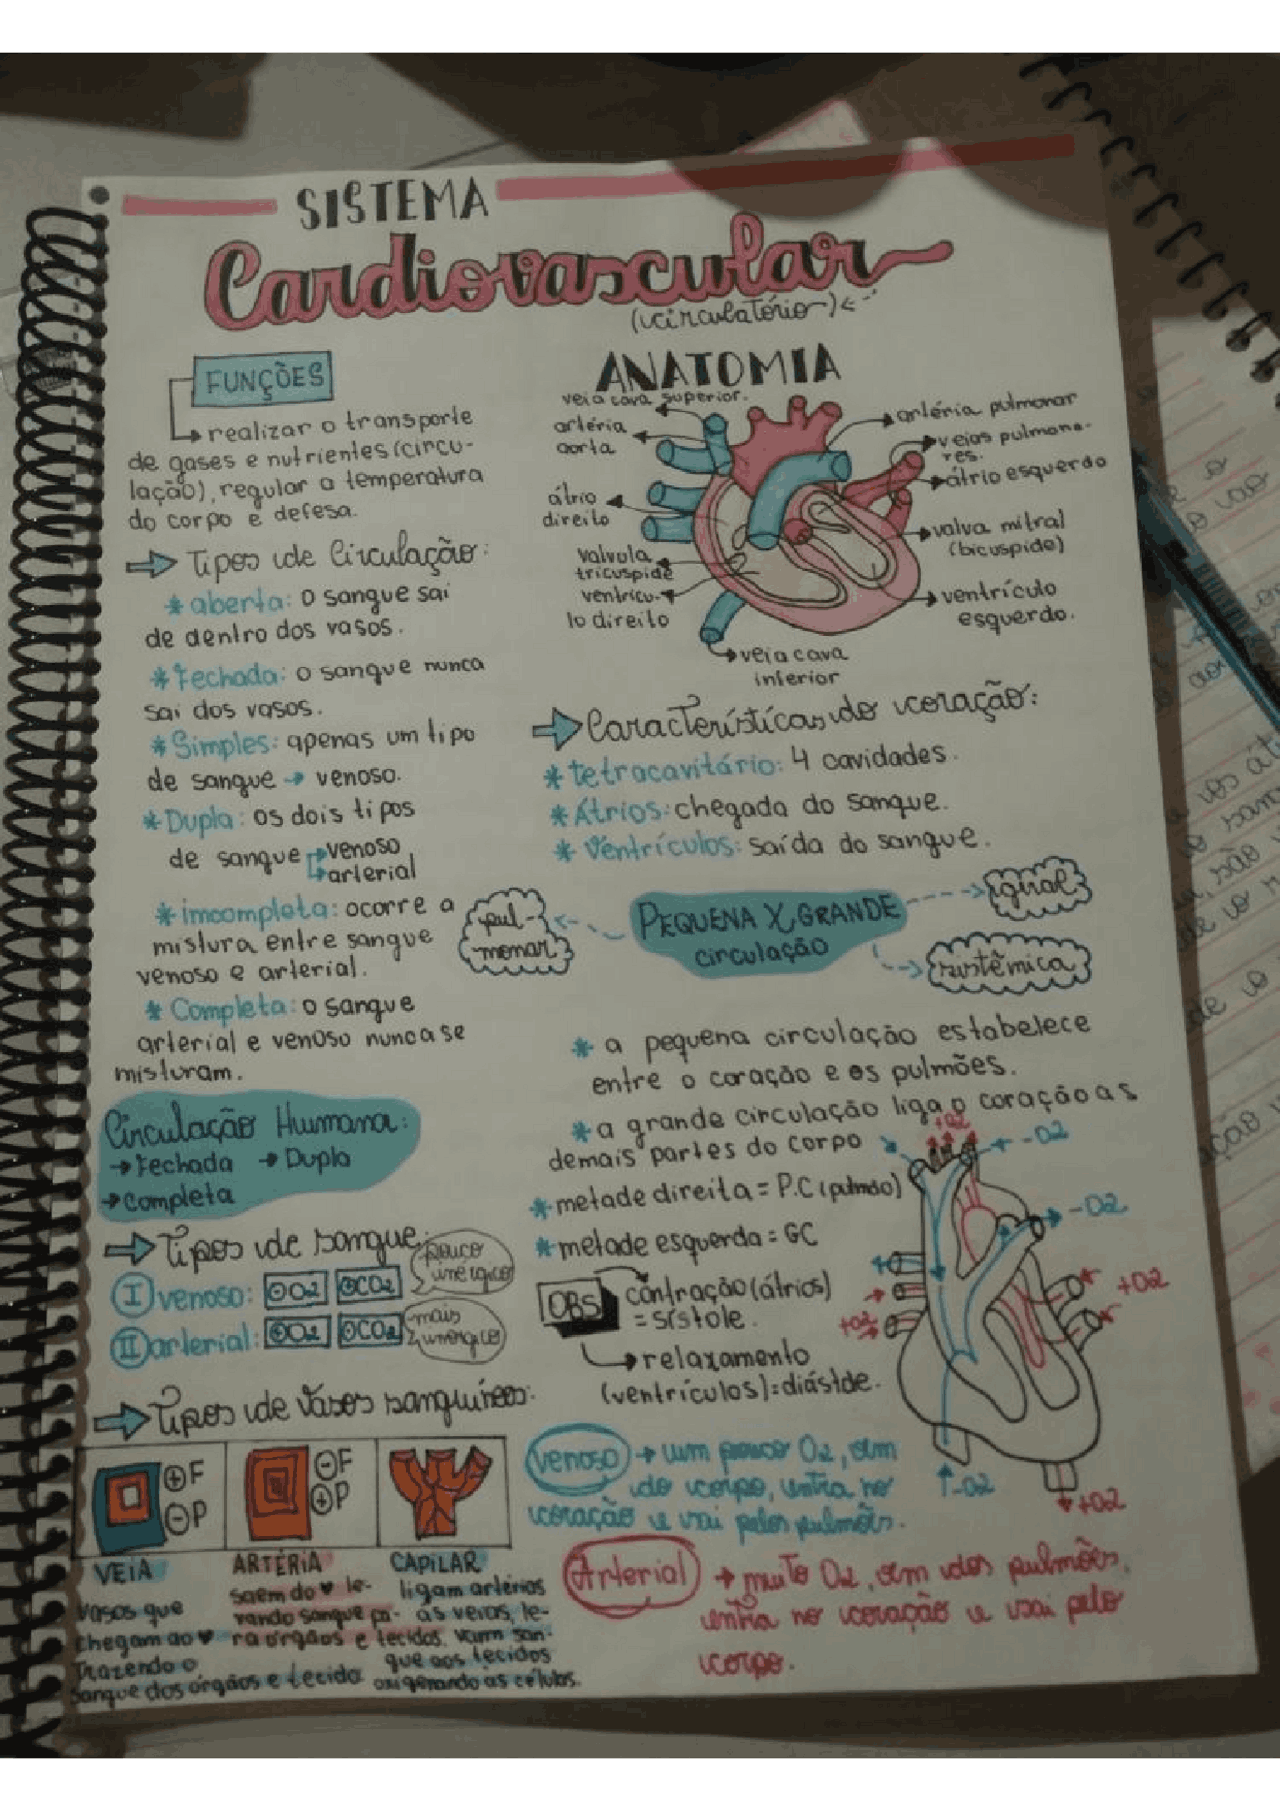 SISTEMA
Cardiovascular
(circulatório)
FUNÇÕES
realizar o transporte
de gases e nutrientes (circu-
lação), regular a temperatura
do corpo e defesa.
Tipos de Circulação:
* aberta: o sangue sai
de dentro dos vasos.
* fechada: o sangue nunca
sai dos vasos.
* Simples: apenas um tipo
de sangue → venoso.
* Dupla: os dois tipos
de sangue → venoso
→ arterial
* imcompleta: ocorre a
mistura entre sangue
venoso e arterial.
* Completa: o sangue
arterial e venoso nunca se
misturam.
Circulação Humana:
→ Fechada → Dupla
→ Completa
→ Tipos de sangue:
I venoso: ⊖O2 ⊕CO2
pouco
energico
II arterial: ⊕O2 ⊖CO2
mais
energico
→ Tipos de Vasos sanguíneos:
⊕F
⊖P
⊖F
⊕P
VEIA
Vasos que
chegam ao ♥
trazendo o
sangue dos órgãos e tecido
ARTÉRIA
saem do ♥ le-
vando sangue pa-
ra órgãos e tecidos.
CAPILAR
ligam artérias
as veias, le-
vam san-
gue aos tecidos
oxigenando as células.
ANATOMIA
veia cava superior.
artéria
aorta
átrio
direito
valvula
tricuspide
ventrícu-
lo direito
artéria pulmonar
veias pulmona-
res.
átrio esquerdo
valva mitral
(bicuspide)
ventrículo
esquerdo.
veia cava
inferior
→ Características do coração:
* tetracavitário: 4 cavidades.
* Átrios: chegada do sangue.
* Ventrículos: saída do sangue.
pul-
monar
PEQUENA X GRANDE
circulação
sistêmica
* a pequena circulação estabelece
entre o coração e os pulmões.
* a grande circulação liga o coração as
demais partes do corpo
* metade direita = P.C (pulmão)
* metade esquerda = GC
OBS
contração (átrios)
= sístole.
→ relaxamento
(ventrículos) = diástole.
+O2
-O2
-O2
+O2
+O2
-O2
+O2
Venoso → um pouco O2, vem
do corpo, entra no
coração e vai pelos pulmões.
Arterial → muito O2, vem dos pulmões,
entra no coração e vai pelo
corpo.